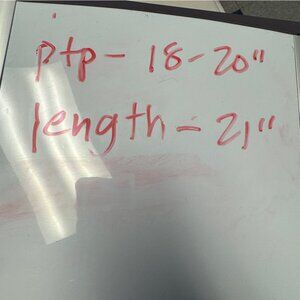 ptp - 18-20"
length - 21"